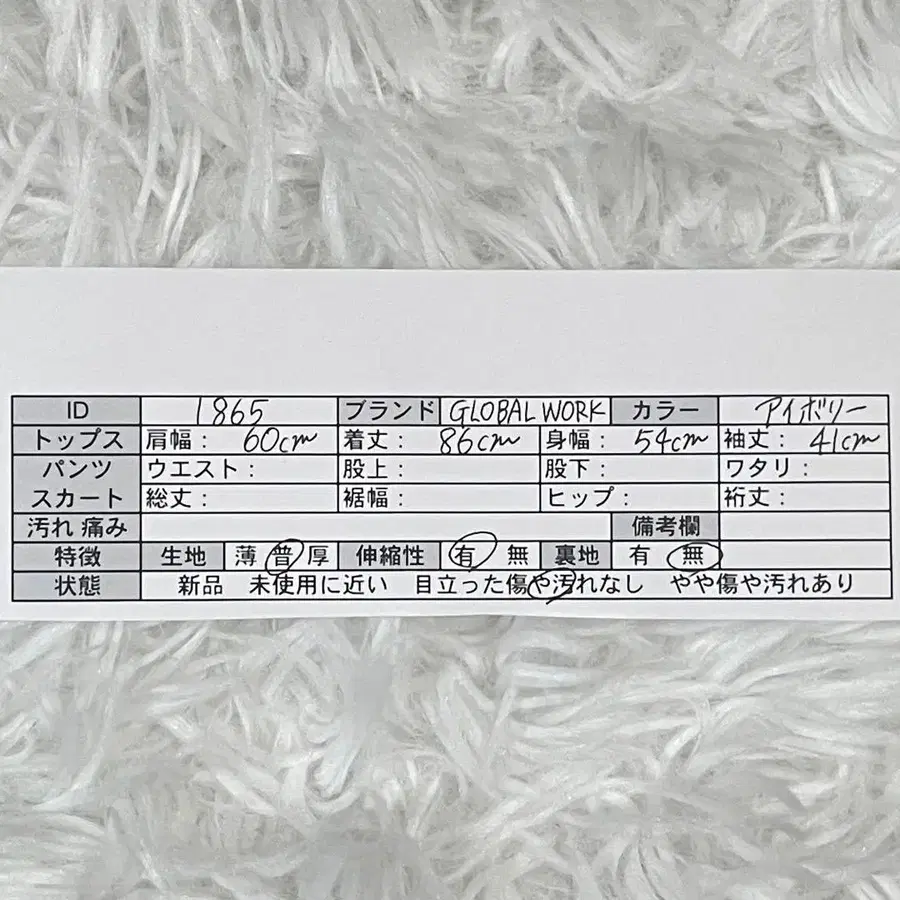 ID 1865 ブランド GLOBAL WORK カラー アイボリー
トップス 肩幅： 60cm 着丈： 86cm 身幅： 54cm 袖丈： 41cm
パンツ ウエスト： 股上： 股下： ワタリ：
スカート 総丈： 裾幅： ヒップ： 裄丈：
汚れ 痛み 備考欄
特徴 生地 薄 普 厚 伸縮性 有 無 裏地 有 無
状態 新品 未使用に近い 目立った傷や汚れなし やや傷や汚れあり